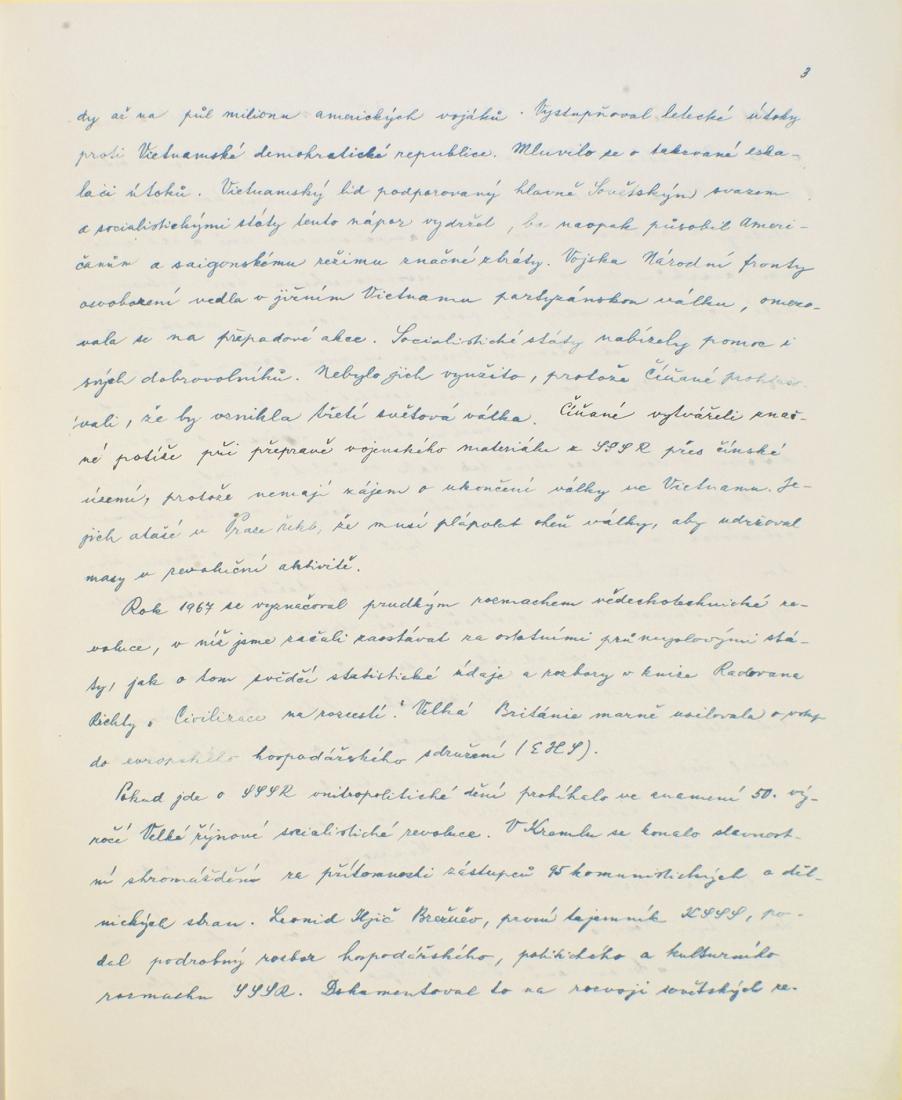 3
dy až na půl milionu amerických vojáků. Vystupňoval letecké útoky
proti Vietnamské demokratické republice. Mluvilo se o takované eska-
laci útoků. Vietnamský lid podporovaný hlavně Sovětským svazem
a socialistickými státy tento nápor vydržel, ba naopak působil Ameri-
čanům a saigonskému režimu značné ztráty. Vojska Národní fronty
osvobození vedla v jižním Vietnamu partyzánskou válku, omezo-
vala se na přepadové akce. Socialistické státy nabízely pomoc i
svých dobrovolníků. Nebylo jich využito, protože Číňané prohlašo-
vali, že by vznikla třetí světová válka. Číňané vytvářeli znač-
né potíže při přepravě vojenského materiálu z SSSR přes čínské
území, protože nemají zájem o ukončení války ve Vietnamu. Je-
jich atašé v Praze řekl, že musí plápolat oheň války, aby udržoval
masy v revoluční aktivitě.
Rok 1967 se vyznačoval prudkým rozmachem vědeckotechnické re-
voluce, v níž jsme začali zaostávat za ostatními průmyslovými stá-
ty, jak o tom svědčí statistické údaje a rozbory v knize Radovana
Richty „Civilizace na rozcestí." Velká Británie marně usilovala o vstup
do evropského hospodářského sdružení (EHS).
Pokud jde o SSSR vnitropolitické dění probíhalo ve znamení 50. vý-
ročí Velké říjnové socialistické revoluce. V Kremlu se konalo slavnost-
ní shromáždění za přítomnosti zástupců 95 komunistických a děl-
nických stran. Leonid Iljič Brežněv, první tajemník KSSS, po-
dal podrobný rozbor hospodářského, politického a kulturního
rozmachu SSSR. Dokumentoval to na rozvoji sovětských re-